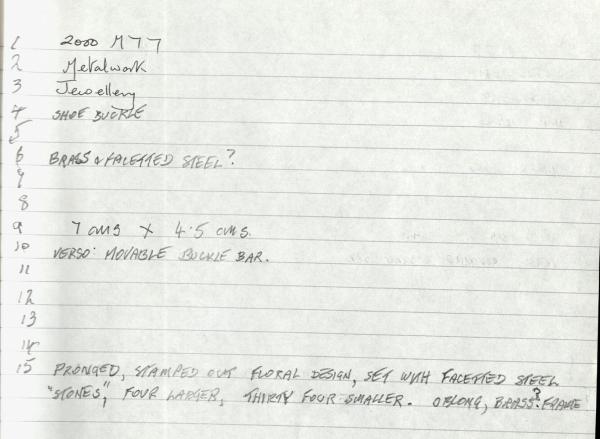 1 2000 M77
2 Metalwork
3 Jewellery
4 SHOE BUCKLE
5
6 BRASS & FACETTED STEEL?
7
8
9 7 cms X 4.5 cms.
10 VERSO: MOVABLE BUCKLE BAR.
11
12
13
14
15 PRONGED, STAMPED OUT FLORAL DESIGN, SET WITH FACETTED STEEL
"STONES", FOUR LARGER, THIRTY FOUR SMALLER. OBLONG, BRASS? FRAME